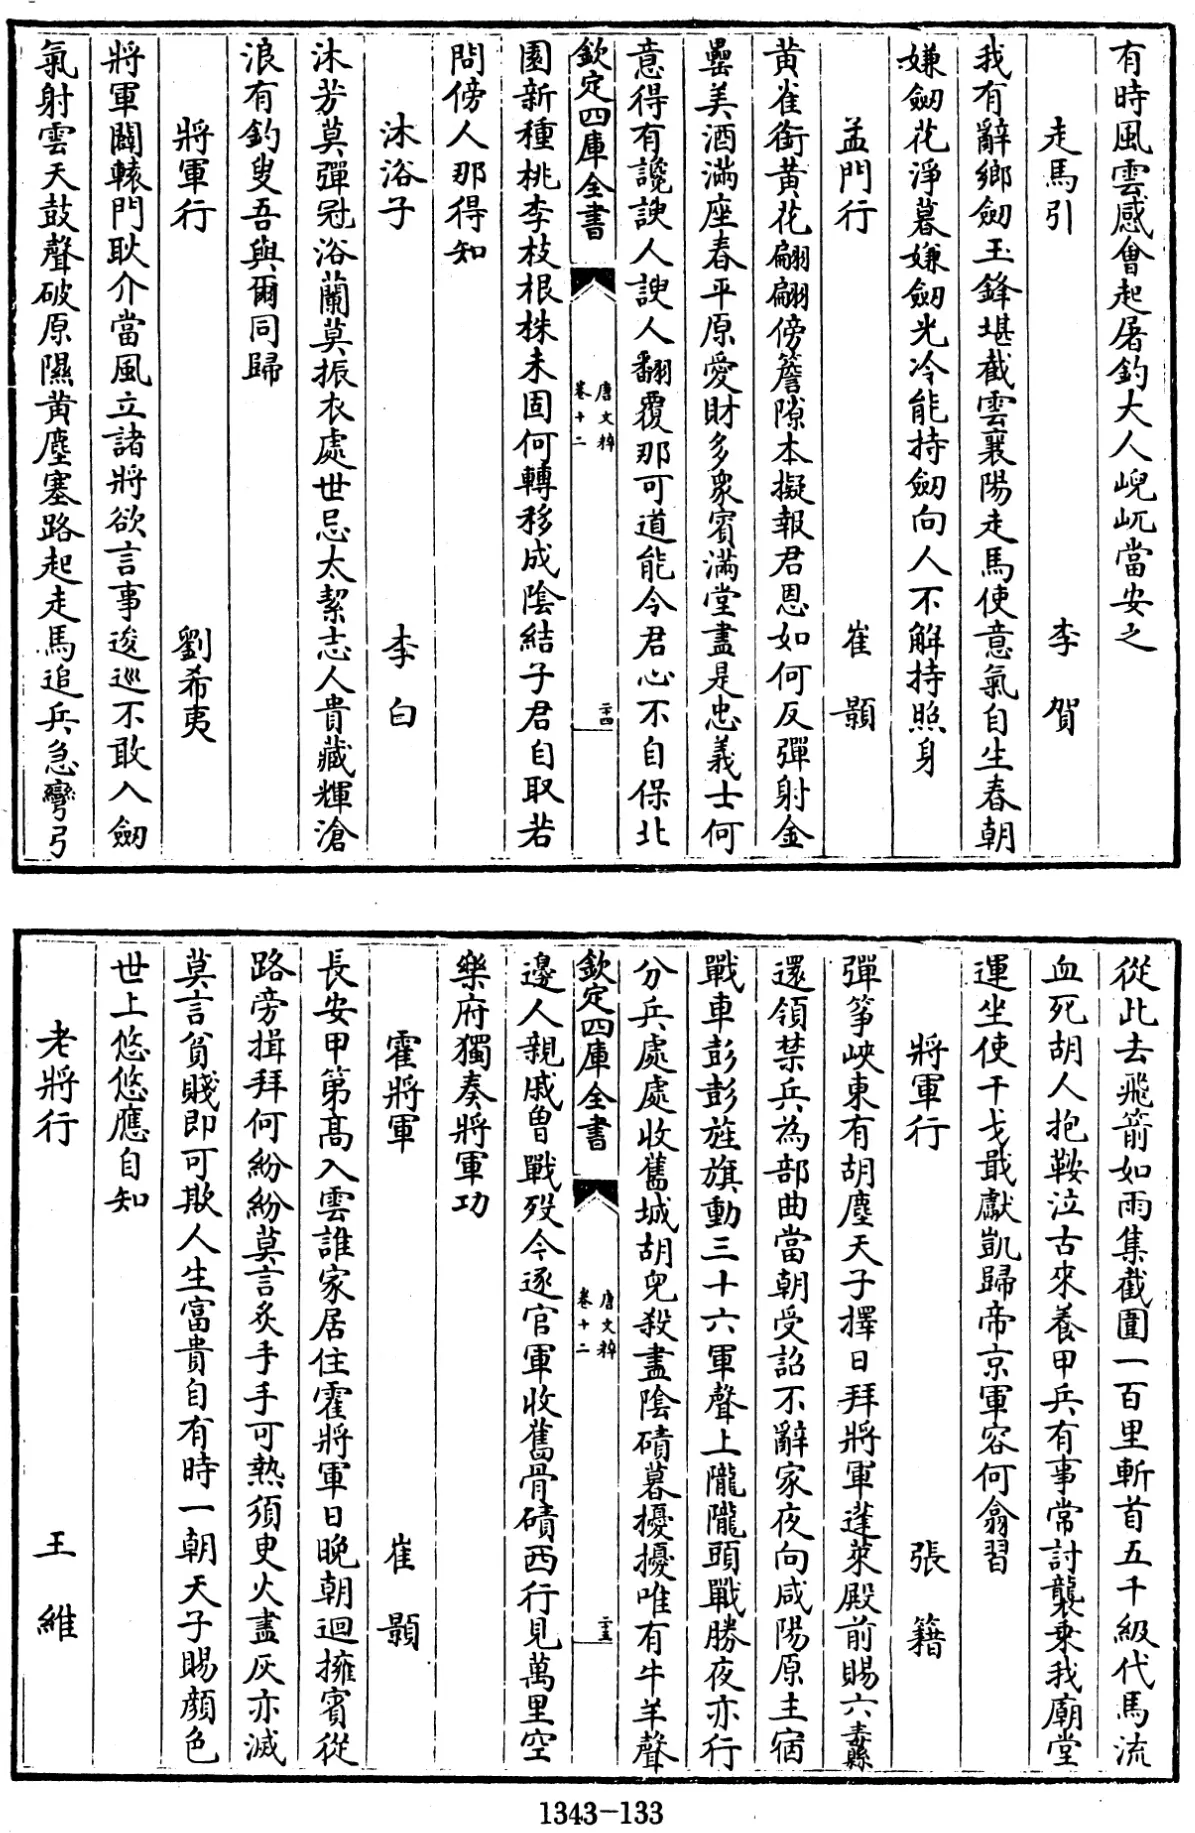 有時風雲感會起屠釣大人𡸣屼當安之
走馬引 李賀
我有辭鄉劒玉鋒堪截雲襄陽走馬使意氣自生春朝
嫌劒花淨暮嫌劒光冷能持劒向人不解持照身
孟門行 崔顥
黄雀銜黄花翩翩傍簷隙本擬報君恩如何反彈射金
罍美酒滿座春平原愛財多衆賓滿堂盡是忠義士何
意得有讒諛人諛人翻覆那可道能令君心不自保北
欽定四庫全書 唐文粹 卷十二 二十四
園新種桃李枝根株未固何轉移成陰結子君自取若
問傍人那得知
沐浴子 李白
沐芳莫彈冠浴蘭莫振衣處世忌太絜志人貴藏輝滄
浪有釣叟吾與爾同歸
將軍行 劉希夷
將軍闢轅門耿介當風立諸將欲言事逡巡不敢入劒
氣射雲天鼓聲破原隰黄塵塞路起走馬追兵急彎弓
從此去飛箭如雨集截圍一百里斬首五千級代馬流
血死胡人抱鞍泣古來養甲兵有事常討襲乗我廟堂
運坐使干戈戢獻凱歸帝京軍容何翕習
將軍行 張籍
彈筝峽東有胡塵天子擇日拜將軍蓬萊殿前賜六纛
還領禁兵為部曲當朝受詔不辭家夜向咸陽原上宿
戰車彭彭旌旗動三十六軍聲上隴隴頭戰勝夜亦行
分兵處處收舊城胡兒殺盡陰磧暮擾擾唯有牛羊聲
欽定四庫全書 唐文粹 卷十二 二十五
邊人親戚曽戰殁今逐官軍收舊骨磧西行見萬里空
樂府獨奏將軍功
霍將軍 崔顥
長安甲第髙入雲誰家居住霍將軍日晚朝迴擁賓從
路旁揖拜何紛紛莫言炙手手可熱須臾火盡灰亦滅
莫言貧賤即可欺人生富貴自有時一朝天子賜顔色
世上悠悠應自知
老將行 王維
1343-133